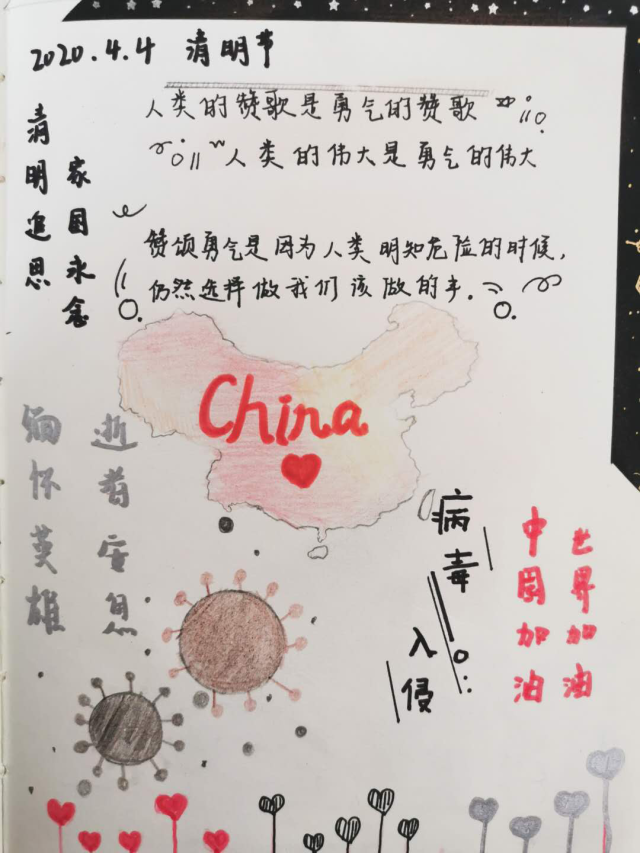 2020.4.4 清明节
人类的赞歌是勇气的赞歌
人类的伟大是勇气的伟大
清明追思
家国永念
赞颂勇气是因为人类明知危险的时候,
仍然选择做我们该做的事.
China
缅怀英雄
逝者安息
病毒
入侵
中国加油
世界加油